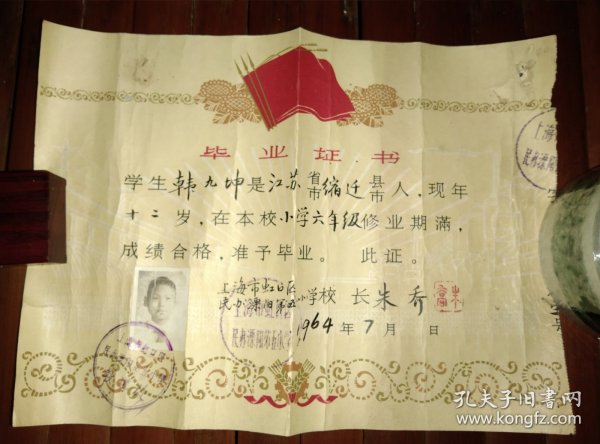 毕业证书
学生韩九坤是江苏省市缩迁县市人,现年
十二岁,在本校小学六年级修业期满,
成绩合格,准予毕业。 此证。
上海市虹口区
民办溧阳第五小学校 长朱乔
1964年7月 日
上海
民办溧阳
民办溧阳第五小学
孔夫子旧书网
www.kongfz.com